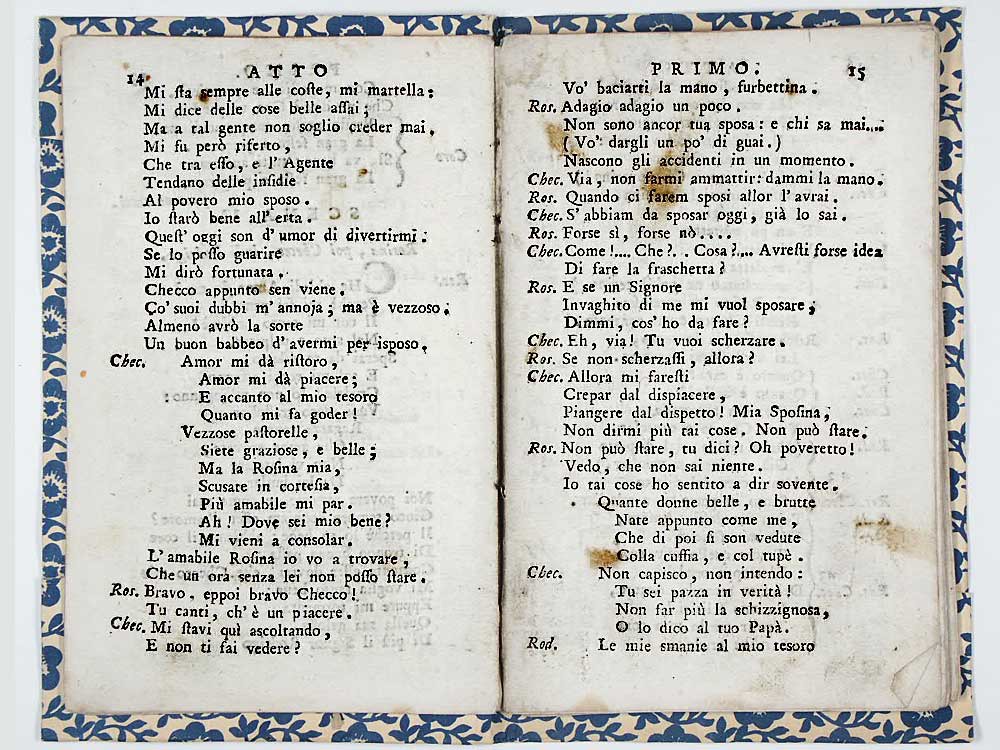 14 ATTO
Mi ſta ſempre alle coſte, mi martella:
Mi dice delle coſe belle aſſai;
Ma a tal gente non ſoglio creder mai.
Mi fu però riferto,
Che tra eſſo, e l'Agente
Tendano delle inſidie
Al povero mio sposo.
Io ſtarò bene all'erta.
Queſt'oggi son d'umor di divertirmi.
Se lo poſſo guarire
Mi dirò fortunata.
Checco appunto sen viene.
Co'suoi dubbi m'annoja; ma è vezzoso.
Almeno avrò la sorte
Un buon babbeo d'avermi per isposo.
Chec. Amor mi dà riſtoro,
Amor mi dà piacere;
E accanto al mio tesoro
Quanto mi fa goder!
Vezzose paſtorelle,
Siete graziose, e belle;
Ma la Roſina mia,
Scusate in corteſia,
Più amabile mi par.
Ah! Dove sei mio bene?
Mi vieni a consolar.
L'amabile Roſina io vo a trovare,
Che un ora senza lei non poſſo ſtare.
Ros. Bravo, eppoi bravo Checco!
Tu canti, ch'è un piacere.
Chec. Mi ſtavi quì ascoltando,
E non ti fai vedere?
PRIMO. 15
Vo' baciarti la mano, furbettina.
Ros. Adagio adagio un poco.
Non sono ancor tua sposa: e chi sa mai....
(Vo' dargli un po' di guai.)
Nascono gli accidenti in un momento.
Chec. Via, non farmi ammattir: dammi la mano.
Ros. Quando ci farem sposi allor l'avrai.
Chec. S'abbiam da sposar oggi, già lo sai.
Ros. Forse sì, forse nò....
Chec. Come!.... Che?.. Cosa?.... Avreſti forse idea
Di fare la fraschetta?
Ros. E se un Signore
Invaghito di me mi vuol sposare,
Dimmi, cos'ho da fare?
Chec. Eh, via! Tu vuoi scherzare.
Ros. Se non scherzaſſi, allora?
Chec. Allora mi fareſti
Crepar dal dispiacere,
Piangere dal dispetto! Mia Spoſina,
Non dirmi più tai cose. Non può ſtare.
Ros. Non può ſtare, tu dici? Oh poveretto!
Vedo, che non sai niente.
Io tai cose ho sentito a dir sovente.
Quante donne belle, e brutte
Nate appunto come me,
Che di poi ſi son vedute
Colla cuffia, e col tupè.
Chec. Non capisco, non intendo:
Tu sei pazza in verità!
Non far più la schizzignosa,
O lo dico al tuo Papà.
Rod. Le mie smanie al mio tesoro